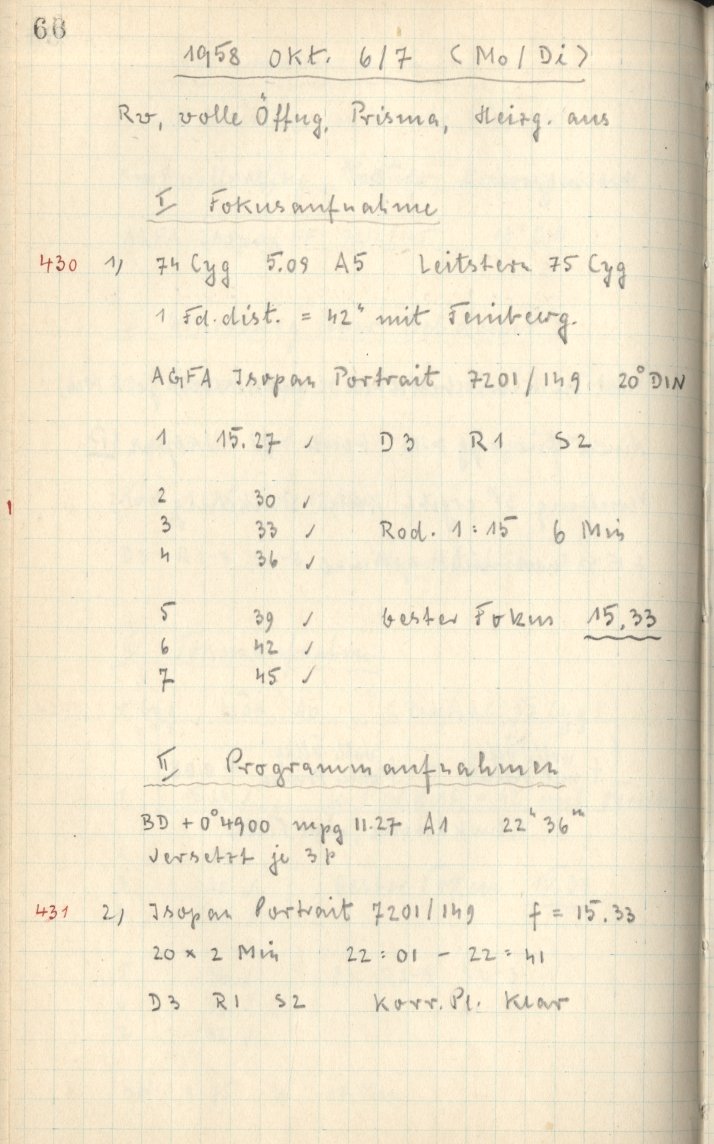 66
1958 Okt. 6/7 (Mo/Di)
Rv, volle Öffng, Prisma, Heizg. aus
I Fokusaufnahme
430 1) 74 Cyg 5.09 A5 Leitstern 75 Cyg
1 Fd.dist. = 42" mit Feinbewg.
AGFA Isopan Portrait 7201/149 20° DIN
1 15.27 ✓ D3 R1 S2
2 30 ✓
3 33 ✓ Rod. 1:15 6 Min
4 36 ✓
5 39 ✓ bester Fokus 15,33
6 42 ✓
7 45 ✓
II Programmaufnahmen
BD + 0° 4900 mpg 11.27 A1 22h 36m
versetzt je 3P
431 2) Isopan Portrait 7201/149 f = 15.33
20 × 2 Min 22:01 - 22:41
D3 R1 S2 Korr. Pl. klar